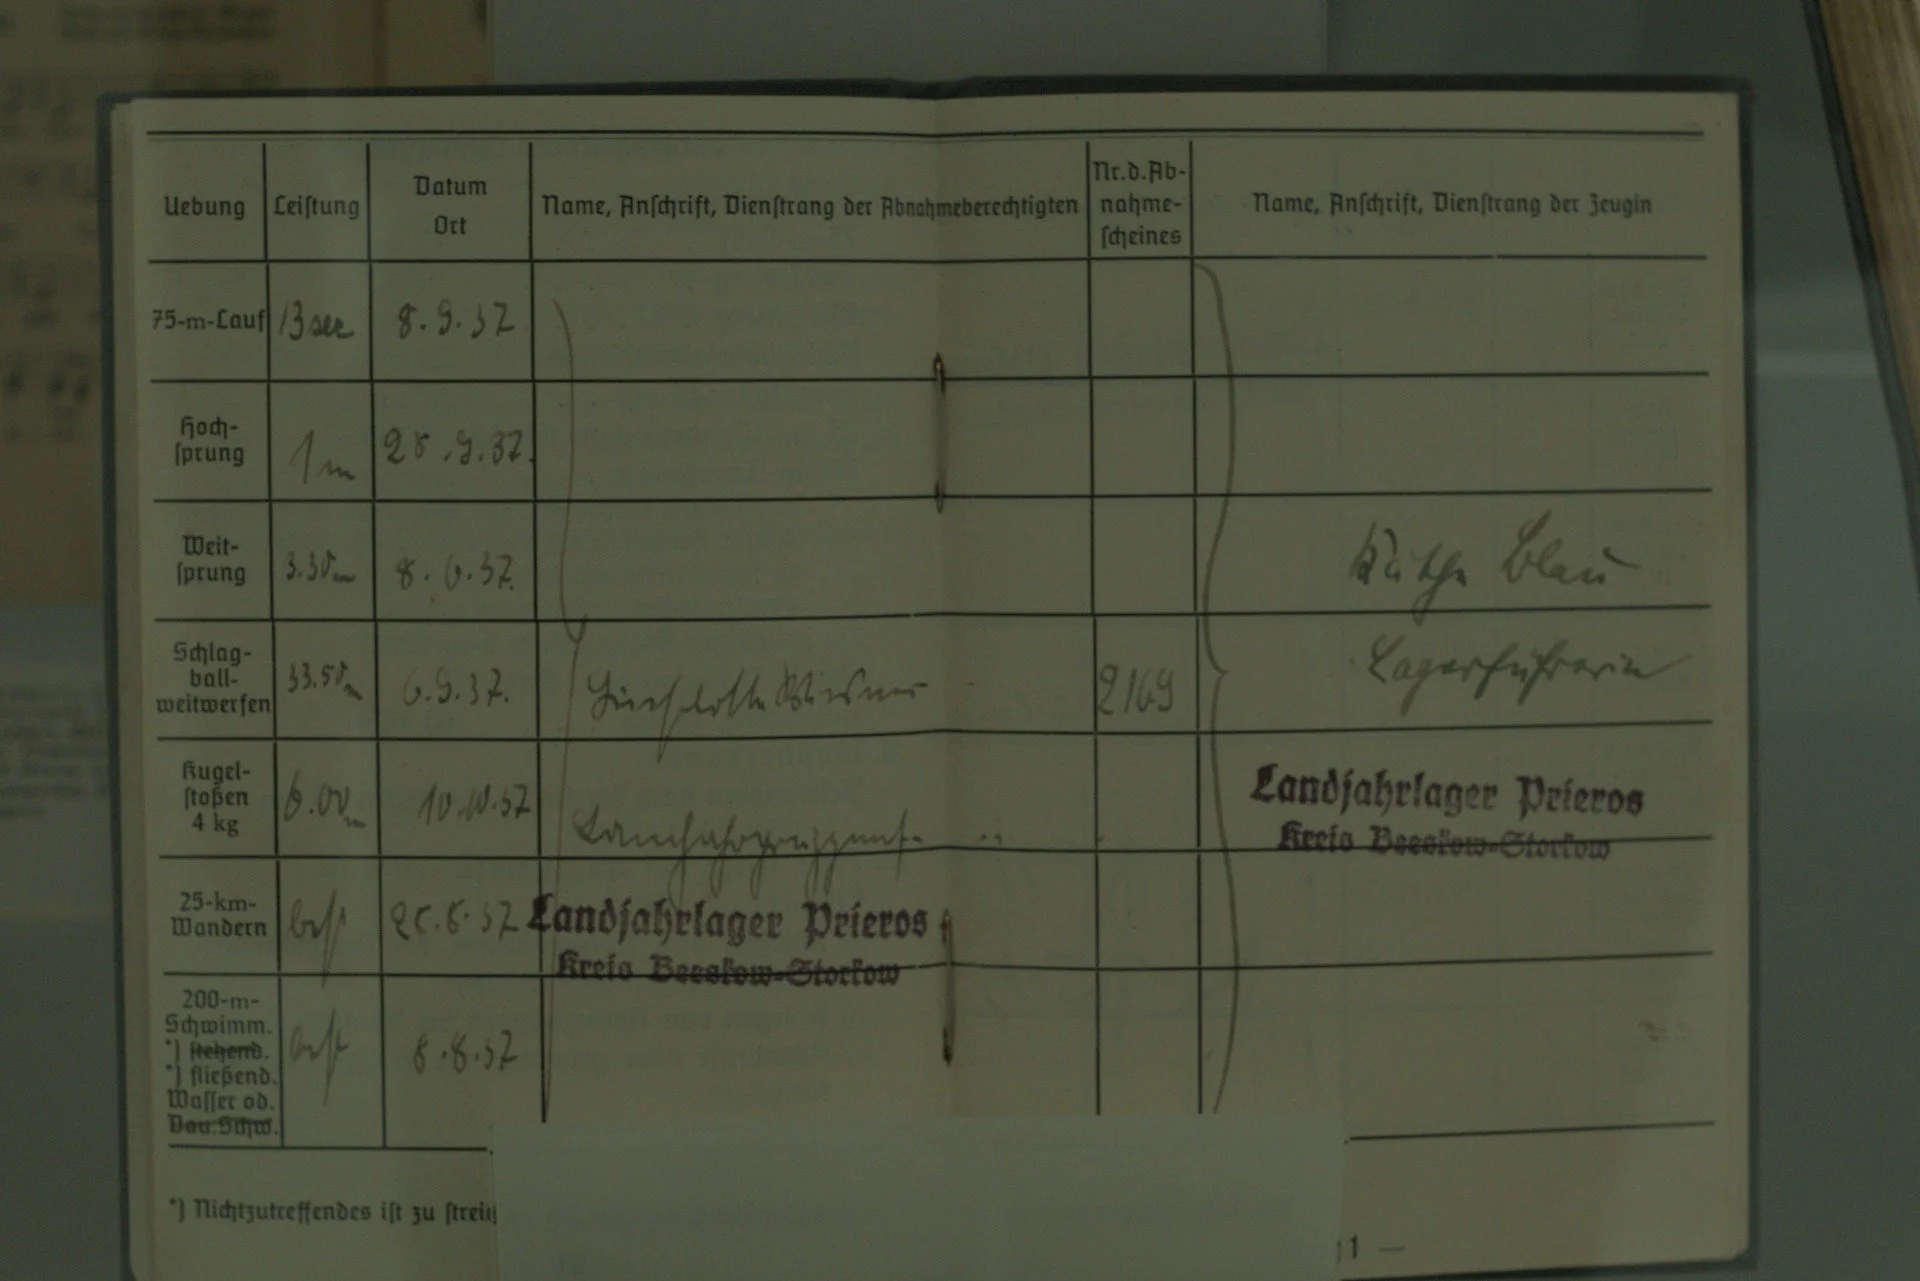 Uebung Leistung Datum Ort Name, Anschrift, Dienstrang der Abnahmeberechtigten Nr.d.Ab-nahme-scheines Name, Anschrift, Dienstrang der Zeugin
75-m-Lauf 13 sec 8.9.37
Hoch-
sprung 1 m 28.9.37.
Weit-
sprung 3.30 m 8.6.37.
Käthe Blau
Schlag-
ball-
weitwerfen 33.50 m 6.9.37. 2169
Lagerführerin
Kugel-
stoßen
4 kg 6.00 m 10.10.37
Landjahrlager Prieros
Kreis Beeskow-Storkow
25-km-
Wandern best
Landjahrlager Prieros
Kreis Beeskow-Storkow
200-m-
Schwimm.
*) stehend.
*) fließend.
Wasser od.
Dau.Schw. best 8.8.37
*) Nichtzutreffendes ist zu
11 —